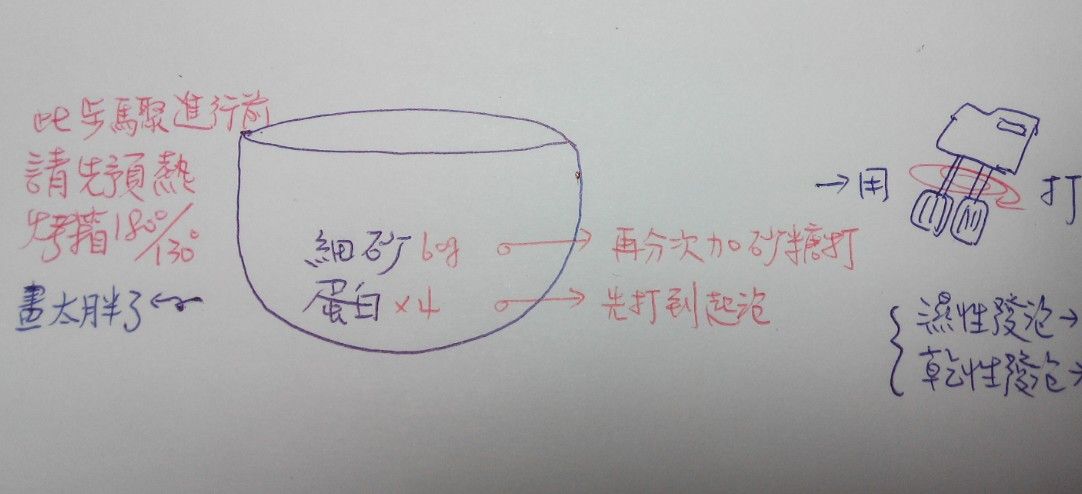 此步驟進行前
請先預熱
烤箱180°/130°
畫太胖了←
細砂60g → 再分次加砂糖打
蛋白×4 → 先打到起泡
→用 打
濕性發泡→
乾性發泡→